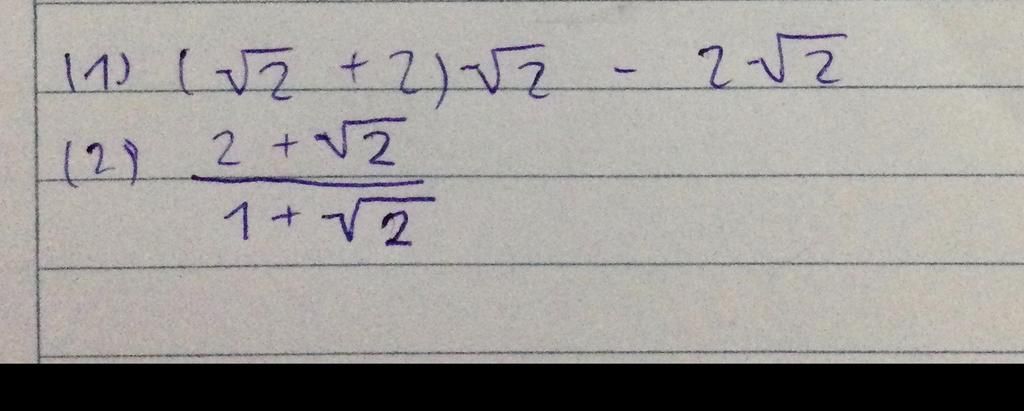 (1) (√2 + 2)√2 - 2√2
(2) 2 + √2
1 + √2